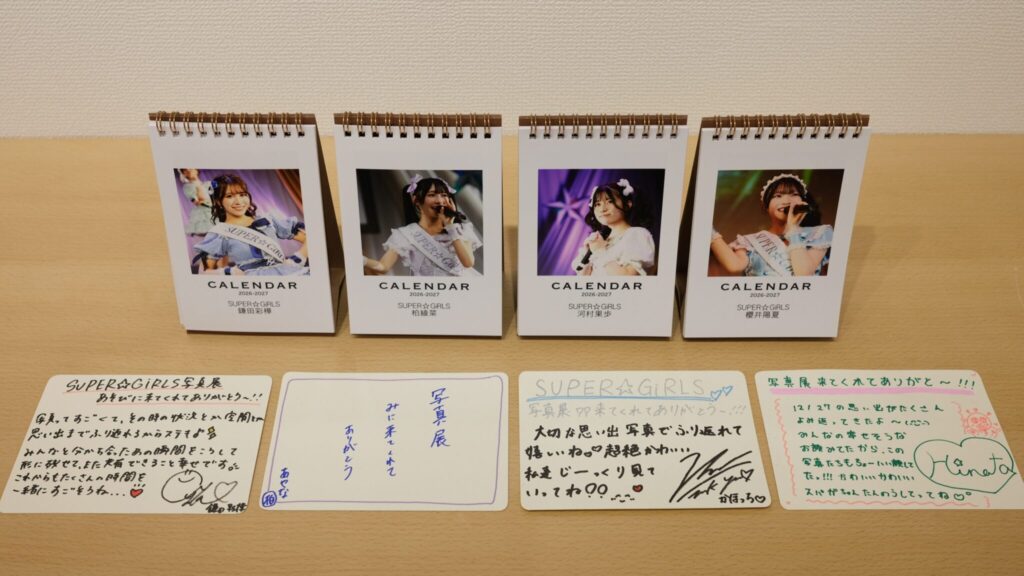 CALENDAR
2026-2027
SUPER☆GiRLS
鎌田彩樺
CALENDAR
2026-2027
SUPER☆GiRLS
柏綾菜
CALENDAR
2026-2027
SUPER☆GiRLS
河村果歩
CALENDAR
2026-2027
SUPER☆GiRLS
櫻井陽夏
SUPER☆GiRLS写真展
あそびに来てくれてありがとう〜!!
写真ってすごくて、その時の状況とか空間とか
思い出までふり返れるからステキ
みんなと分かち合ったあの時間をこうして
形に残せて、また共有できること幸せです
これからもたくさんの時間を
一緒にすごそうね...
写真展
みに来てくれて
ありがとう
あやな
SUPER☆GiRLS
写真展 来てくれてありがとう〜!!!
大切な思い出写真でふり返れて
嬉しいね 超絶かわいい
私達じーっくり見て
いってね♡♡
Thank you
かほっち♡
写真展来てくれてありがと〜!!!
12/27の思い出がたくさん
よみ返ってきたよ〜
みんなの幸せそうな
お顔みてたから、この
写真たちもちょーいい顔して
た!!! かわいいかわいい
スパガちゃんたんのうしてってね
Hinata